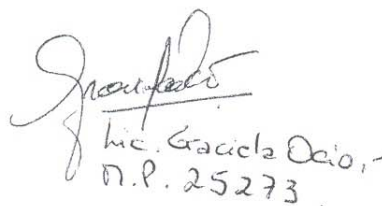 Lic. Graciela Ocio.-
M.P. 25273